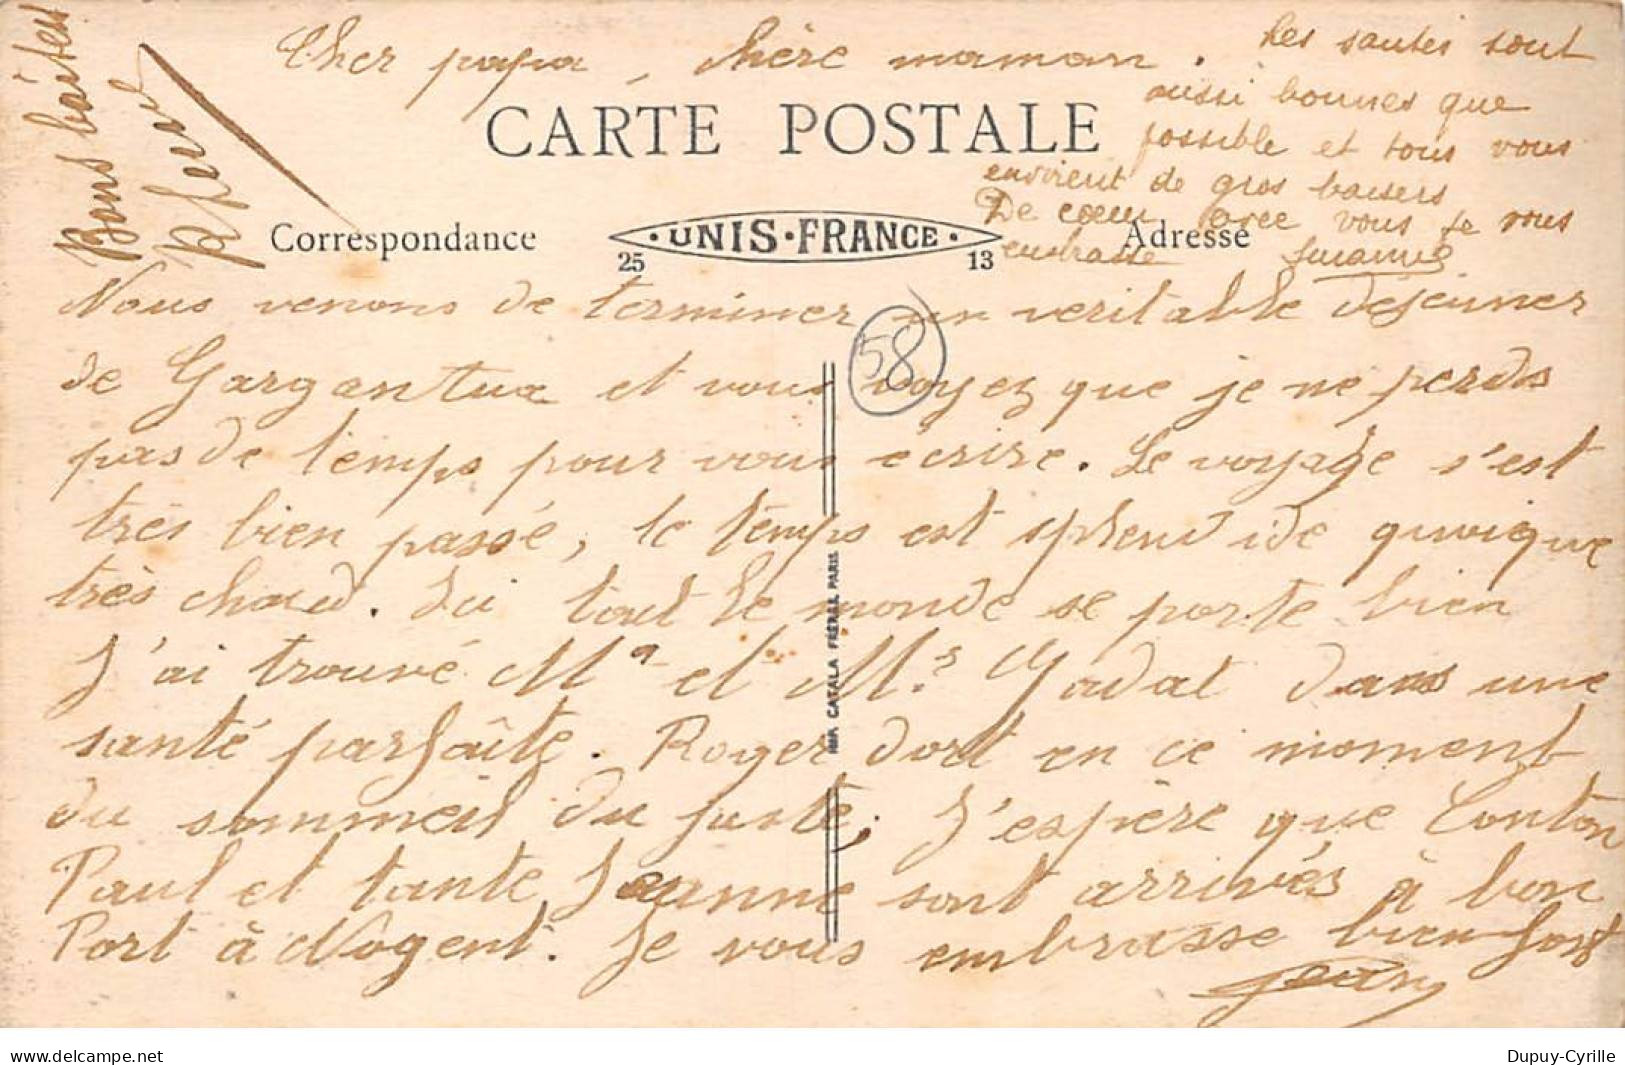 Cher papa, chère maman.
CARTE POSTALE
Correspondance
UNIS·FRANCE
25
13
Adresse
Bons baisers
Les santés sont
aussi bonnes que
possible et tous vous
envoient de gros baisers
De cœur avec vous je vous
embrasse Suzanne
58
Nous venons de terminer un veritable déjeuner
de Gargantua et vous voyez que je ne perds
pas de temps pour vous écrire. Le voyage s'est
très bien passé, le temps est splendide quoique
très chaud. Ici tout le monde se porte bien
J'ai trouvé Me et Mr Gadal dans une
santé parfaite. Roger dort en ce moment
du sommeil du juste, J'espère que Tonton
Paul et tante Jeanne sont arrivés à bon
Port à Nogent. Je vous embrasse bien fort
Jean
IMP. CATALA FRÈRES, PARIS
www.delcampe.net
Dupuy-Cyrille